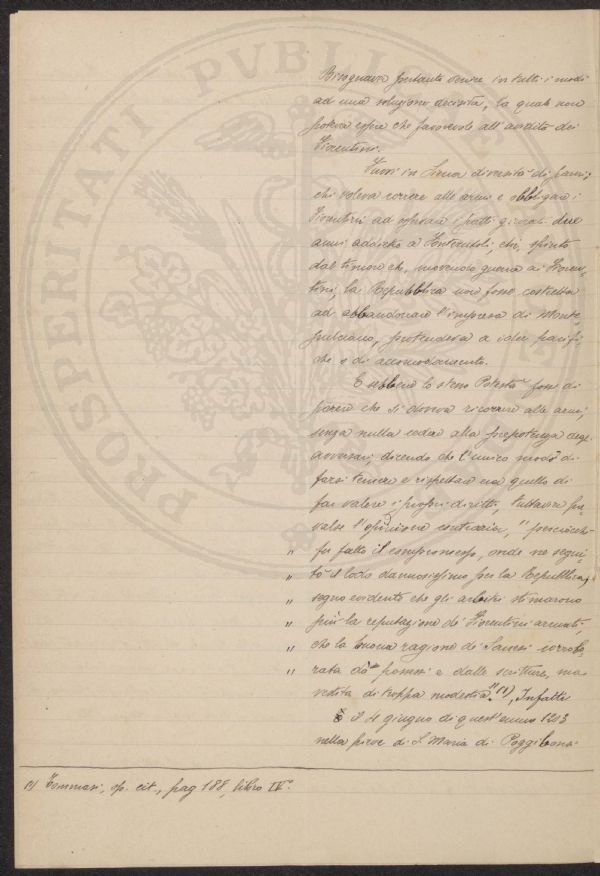 PROSPERITATI PVBLICAE
Bisognava pertanto venire in tutti i modi
ad una soluzione decisiva, la quale non
poteva essere che favorevole all'avidità dei
Fiorentini.
Fuvvi in Siena diversità di pareri;
chi voleva correre alle armi e obbligare i
Fiorentini ad osservare i patti giurati due
anni addietro a Fonterutoli; chi, spinto
dal timore che, movendo guerra ai Fioren-
tini, la Repubblica non fosse costretta
ad abbandonare l'impresa di Monte-
pulciano, protendeva a idee pacifi-
che e di accomodamento.
E sebbene lo stesso Potestà fosse di
parere che si doveva ricorrere alle armi
senza nulla cedere alla prepotenza degli
avversari, dicendo che l'unico modo di
farsi temere e rispettare era quello di
far valere i propri diritti, tuttavia pre
valse l'opinione contraria, "perciocchè
" fu fatto il compromesso, onde ne segui-
" tò il lodo dannosissimo per la Repubblica,
" segno evidente che gli arbitri stimarono
" più la reputazione de' Fiorentini armati,
" che la buona ragione di Sanesi corrobo,
" rata da' possessi e dalle scritture, ma
" vestita di troppa modestia" (1). Infatti
il 4 giugno di quest'anno 1203
nella pieve di S. Maria di Poggibonsi
(1) Tommasi, op. cit., pag 188, libro IV°.